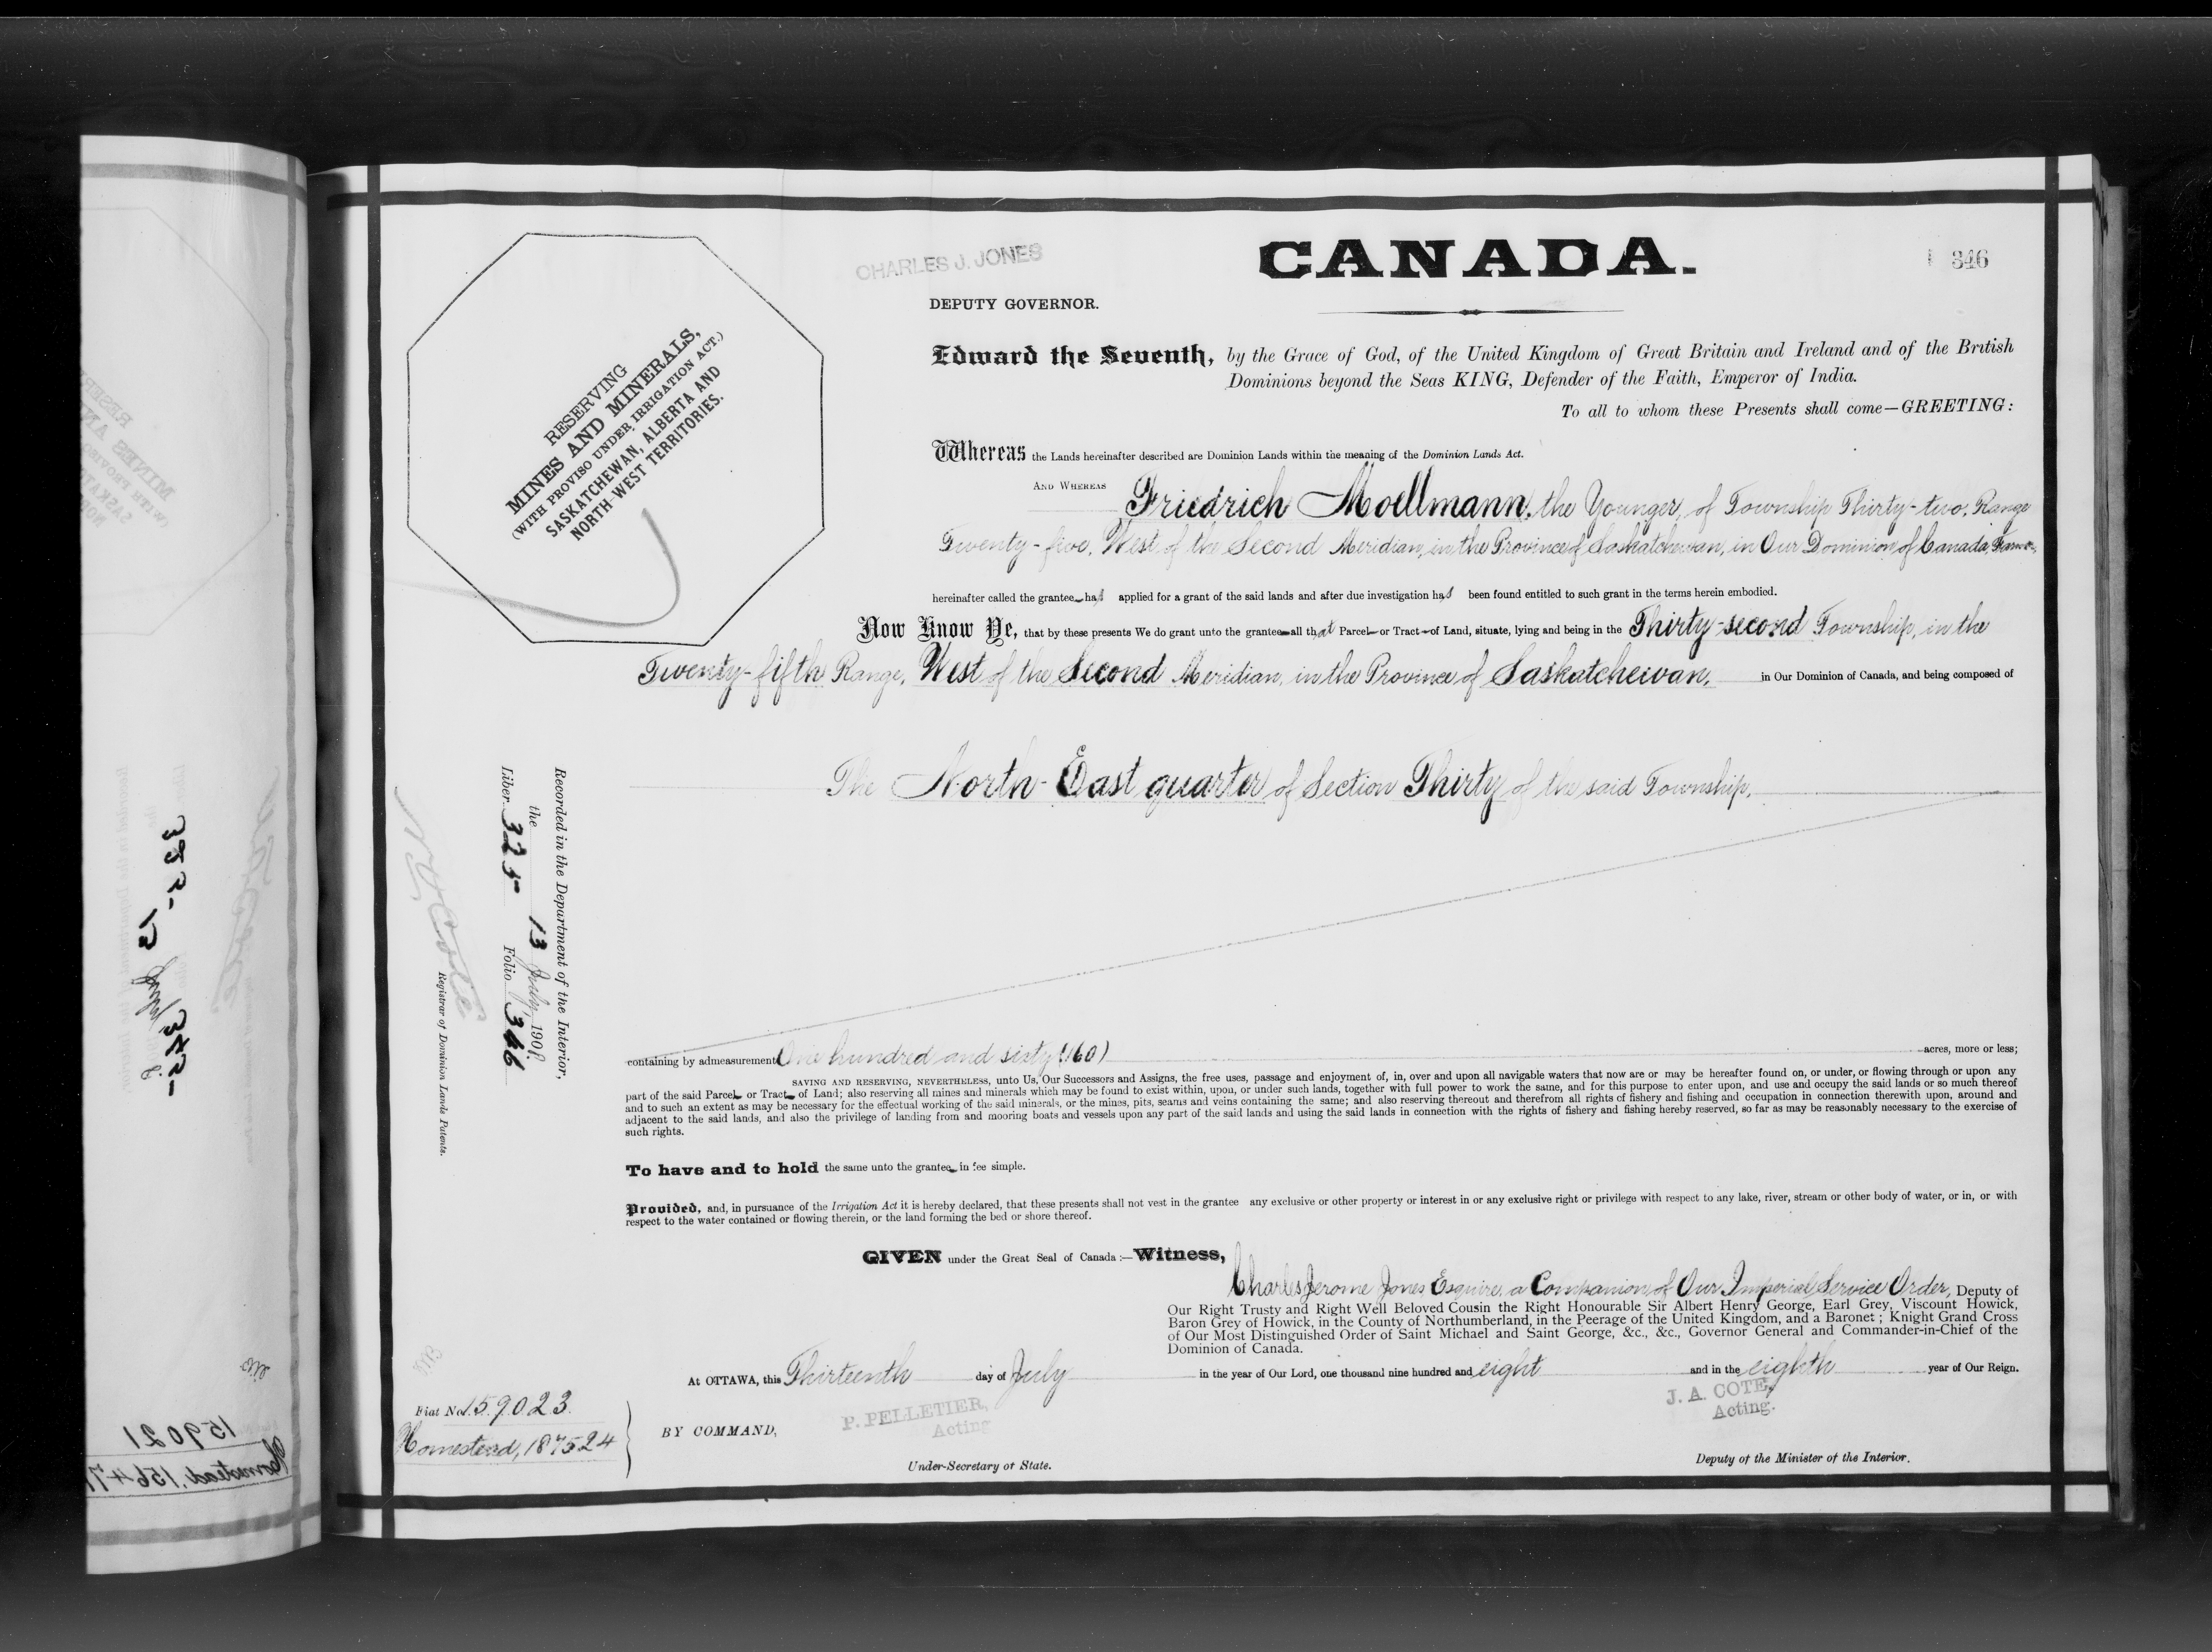 CHARLES J. JONES
CANADA.
346
DEPUTY GOVERNOR.
RESERVING
MINES AND MINERALS,
(WITH PROVISO UNDER IRRIGATION ACT.)
SASKATCHEWAN, ALBERTA AND
NORTH-WEST TERRITORIES.
Edward the Seventh, by the Grace of God, of the United Kingdom of Great Britain and Ireland and of the British
Dominions beyond the Seas KING, Defender of the Faith, Emperor of India.
To all to whom these Presents shall come—GREETING:
Whereas the Lands hereinafter described are Dominion Lands within the meaning of the Dominion Lands Act.
AND WHEREAS Friedrich Moellmann, the Younger, of Township Thirty-two, Range
Twenty-five, West of the Second Meridian, in the Province of Saskatchewan, in Our Dominion of Canada,
hereinafter called the grantee has applied for a grant of the said lands and after due investigation has been found entitled to such grant in the terms herein embodied.
Now Know Ye, that by these presents We do grant unto the grantee all that Parcel or Tract of Land, situate, lying and being in the Thirty-second Township, in the
Twenty-fifth Range, West of the Second Meridian, in the Province of Saskatchewan, in Our Dominion of Canada, and being composed of
The North-East quarter of Section Thirty of the said Township,
Recorded in the Department of the Interior,
the 13 July, 1908.
Liber 325 Folio 346
N O Coté
Registrar of Dominion Lands Patents.
containing by admeasurement One hundred and sixty (160) acres, more or less;
SAVING AND RESERVING, NEVERTHELESS, unto Us, Our Successors and Assigns, the free uses, passage and enjoyment of, in, over and upon all navigable waters that now are or may be hereafter found on, or under, or flowing through or upon any
part of the said Parcel or Tract of Land; also reserving all mines and minerals which may be found to exist within, upon, or under such lands, together with full power to work the same, and for this purpose to enter upon, and use and occupy the said lands or so much thereof
and to such an extent as may be necessary for the effectual working of the said minerals, or the mines, pits, seams and veins containing the same; and also reserving thereout and therefrom all rights of fishery and fishing and occupation in connection therewith upon, around and
adjacent to the said lands, and also the privilege of landing from and mooring boats and vessels upon any part of the said lands and using the said lands in connection with the rights of fishery and fishing hereby reserved, so far as may be reasonably necessary to the exercise of
such rights.
To have and to hold the same unto the grantee in fee simple.
Provided, and, in pursuance of the Irrigation Act it is hereby declared, that these presents shall not vest in the grantee any exclusive or other property or interest in or any exclusive right or privilege with respect to any lake, river, stream or other body of water, or in, or with
respect to the water contained or flowing therein, or the land forming the bed or shore thereof.
GIVEN under the Great Seal of Canada:—Witness,
Charles Jerome Jones Esquire, a Companion of Our Imperial Service Order, Deputy of
Our Right Trusty and Right Well Beloved Cousin the Right Honourable Sir Albert Henry George, Earl Grey, Viscount Howick,
Baron Grey of Howick, in the County of Northumberland, in the Peerage of the United Kingdom, and a Baronet; Knight Grand Cross
of Our Most Distinguished Order of Saint Michael and Saint George, &c., &c., Governor General and Commander-in-Chief of the
Dominion of Canada.
At OTTAWA, this Thirteenth day of July in the year of Our Lord, one thousand nine hundred and eight and in the eighth year of Our Reign.
Fiat No. 159023.
Homestead, 187524
BY COMMAND,
P. PELLETIER,
Acting
Under-Secretary of State.
J. A. COTE,
Acting.
Deputy of the Minister of the Interior.
159021